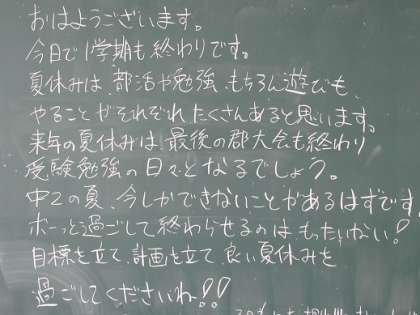 おはようございます。
今日で1学期も終わりです。
夏休みは、部活や勉強、もちろん遊びも、
やることがそれぞれたくさんあると思います。
来年の夏休みは、最後の郡大会も終わり
受験勉強の日々となるでしょう。
中2の夏、今しかできないことがあるはずです
ボーっと過ごして終わらせるのは、もったいない!
目標を立て、計画を立て、良い夏休みを
過ごしてくださいね!!